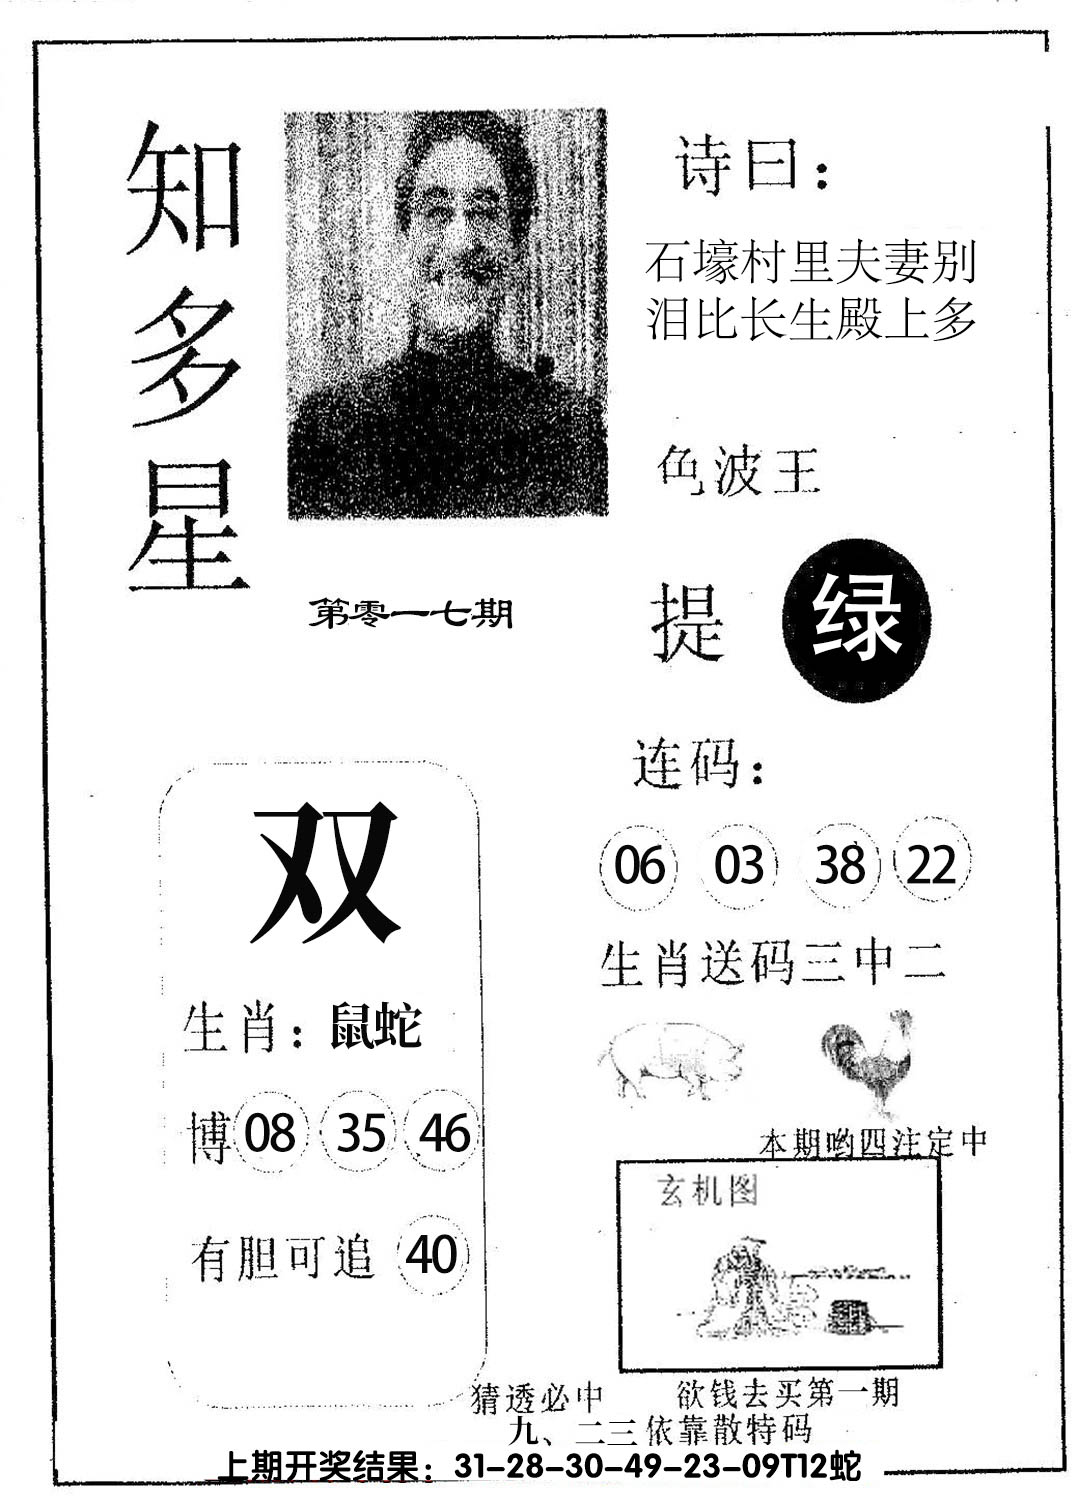 知多星
诗曰：
石壕村里夫妻别
泪比长生殿上多
色波王
提 绿
第零一七期
连码：
06 03 38 22
双
生肖送码三中二
生肖：鼠蛇
博 08 35 46
本期哟四注定中
玄机图
有胆可追 40
猜透必中 欲钱去买第一期
九、二三依靠散特码
上期开奖结果：31-28-30-49-23-09T12蛇